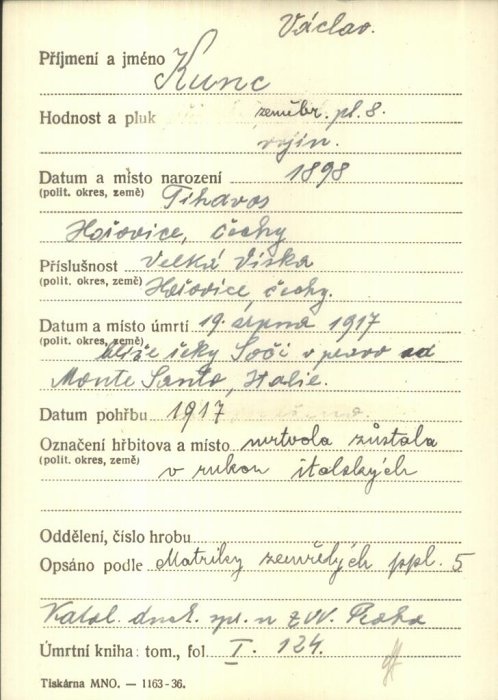 Václav.
Příjmení a jméno Kunc
Hodnost a pluk zeměbr. pl. 8.
vojín.
Datum a místo narození 1898
(polit. okres, země) Tihavos
Hořovice, Čechy
Příslušnost Velká Víska
(polit. okres, země) Hořovice, Čechy.
Datum a místo úmrtí 19. srpna 1917
(polit. okres, země) blíže řeky Soči v pravo od
Monte Santo, Italie.
Datum pohřbu 1917
Označení hřbitova a místo mrtvola zůstala
(polit. okres, země) v rukou italských
Oddělení, číslo hrobu
Opsáno podle Matriky zemřelých ppl. 5
Katol. duch. spr. n ZVV. Praha
Úmrtní kniha: tom., fol. I. 124.
Tiskárna MNO. — 1163-36.